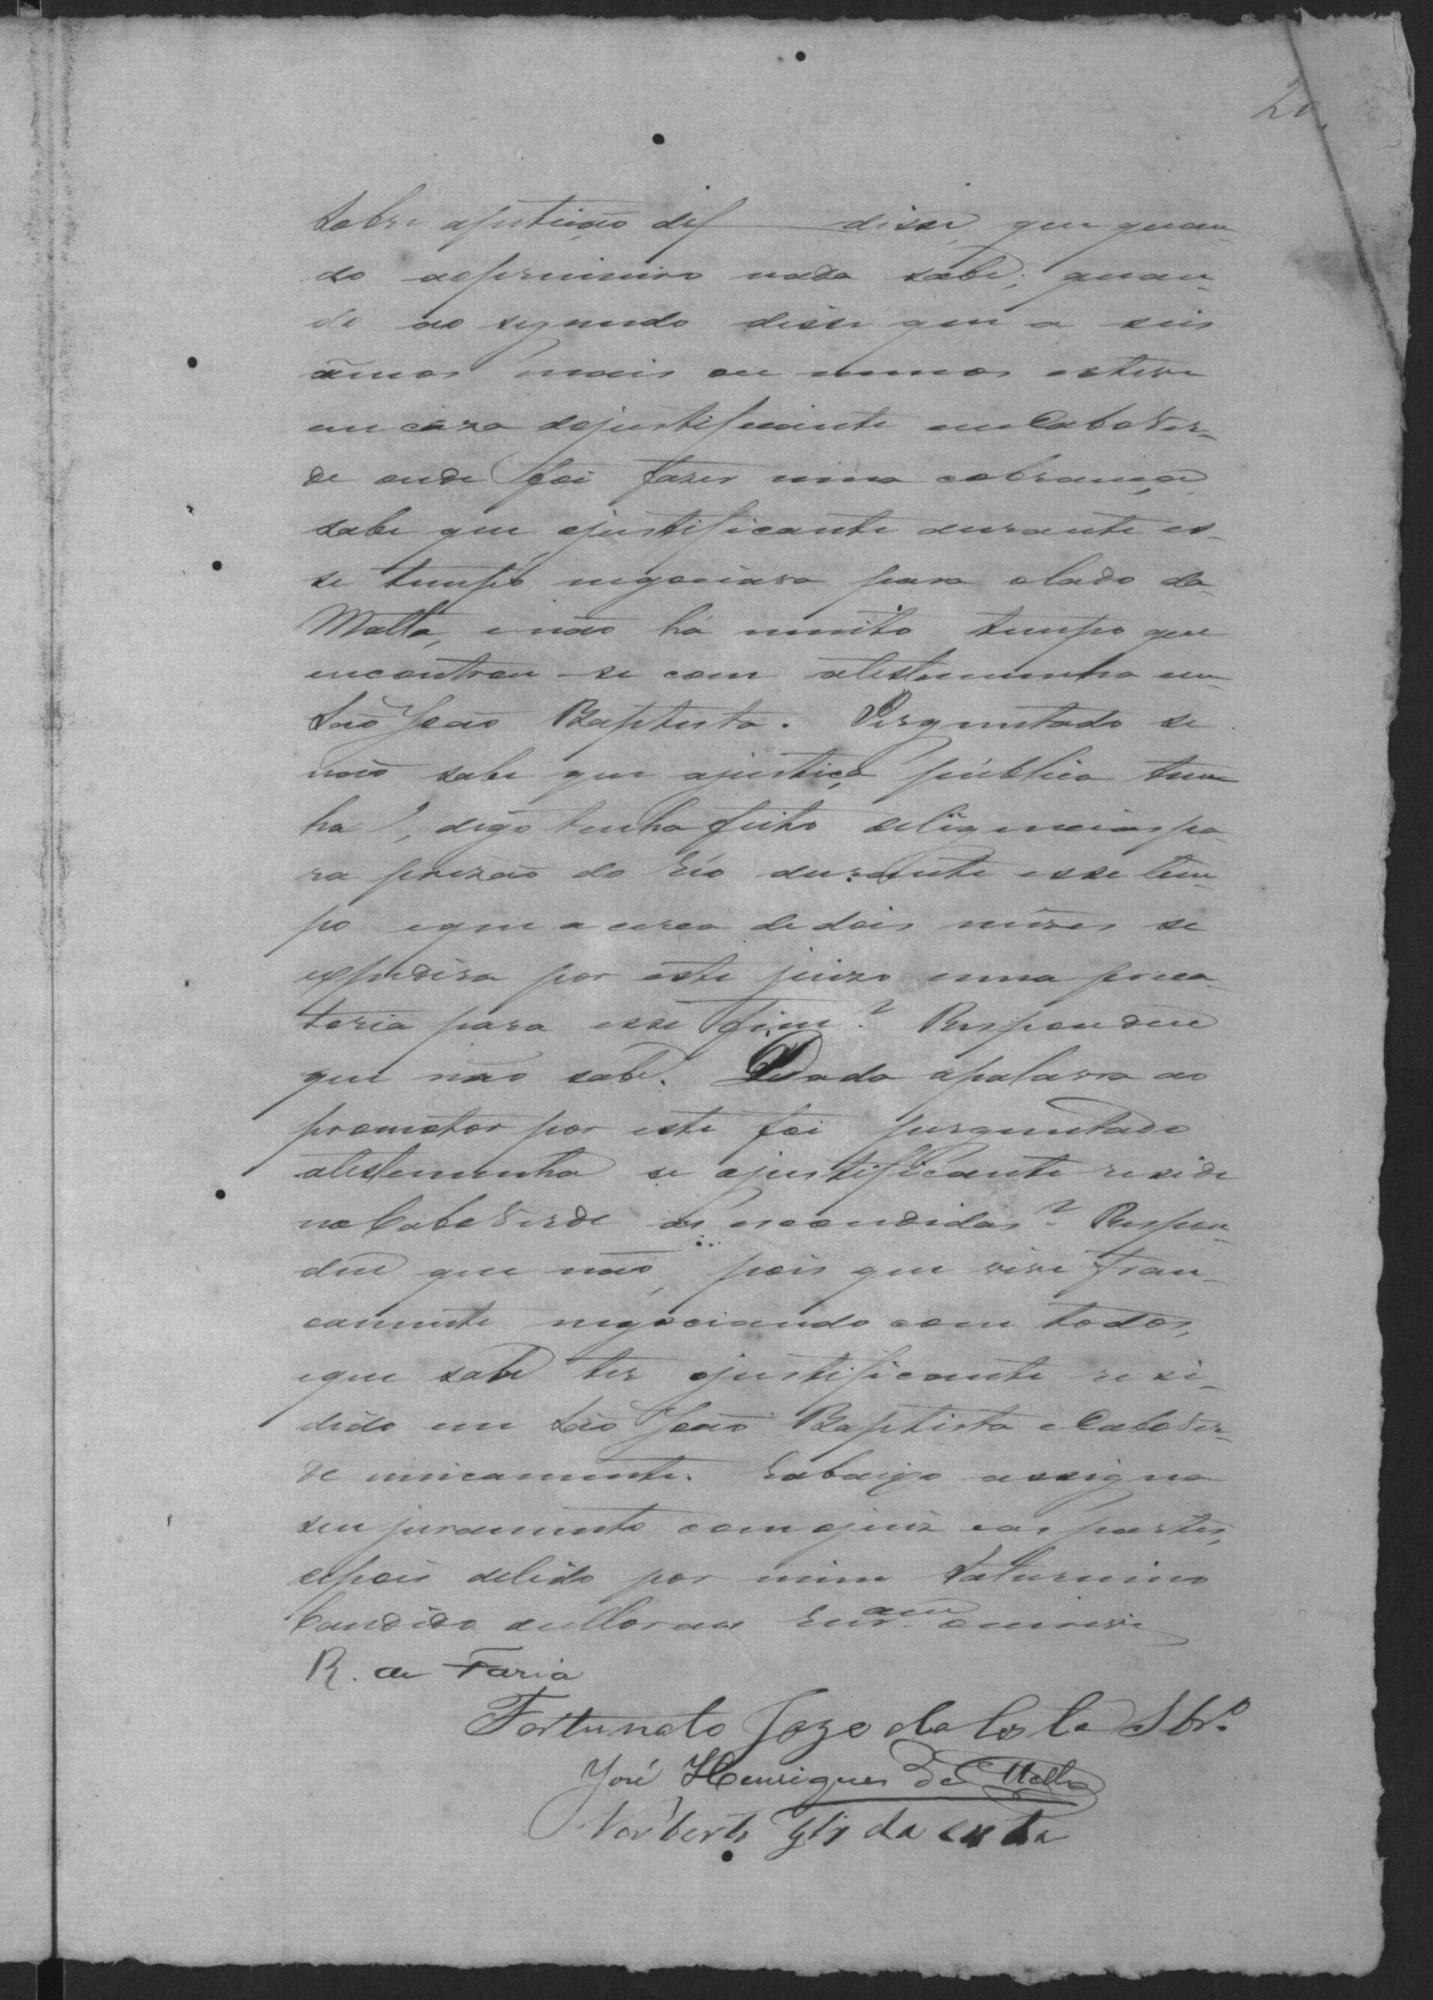 20
sobre apetição de f disse, que quan-
do aoprimeiro nada sabe; quan-
do ao segundo disse que a seis
annos mais ou menos esteve
em caza dojustificante em Cabo Ver-
de onde foi fazer uma cobrança
sabe que ojustificante durante es-
se tempo negociava para o lado da
Matta, e não há muito tempo que
encontrou-se com atestemunha em
São João Baptista. Perguntado se
não sabe que ajustiça pública tem
ha, digo tenha feito deligenciaspa-
ra prizão do Réo durante esse tem-
po eque a cerca de dois mêzes se
expedira por este juizo uma preca-
toria para esse fim? Respondeu
que não sabe. Dada apalavra ao
promotor por este foi perguntado
atestemunha se ojustificante reside
no Cabo Verde as escondidas? Respon-
deu que não, pois que vive fran-
camente negociando com todos,
eque sabe ter ojustificante resi-
dido em São João Baptista e Cabo Ver-
de unicamente. Eabaixo assigna
seu juramento com ojuiz eas partes,
depois delido por mim Saturnino
Candido de Moraes Escr.am oescrevi
R. de Faria
Fortunato Joze da Costa Sbr.o
José Henrique de Mello
Norberto da Costa